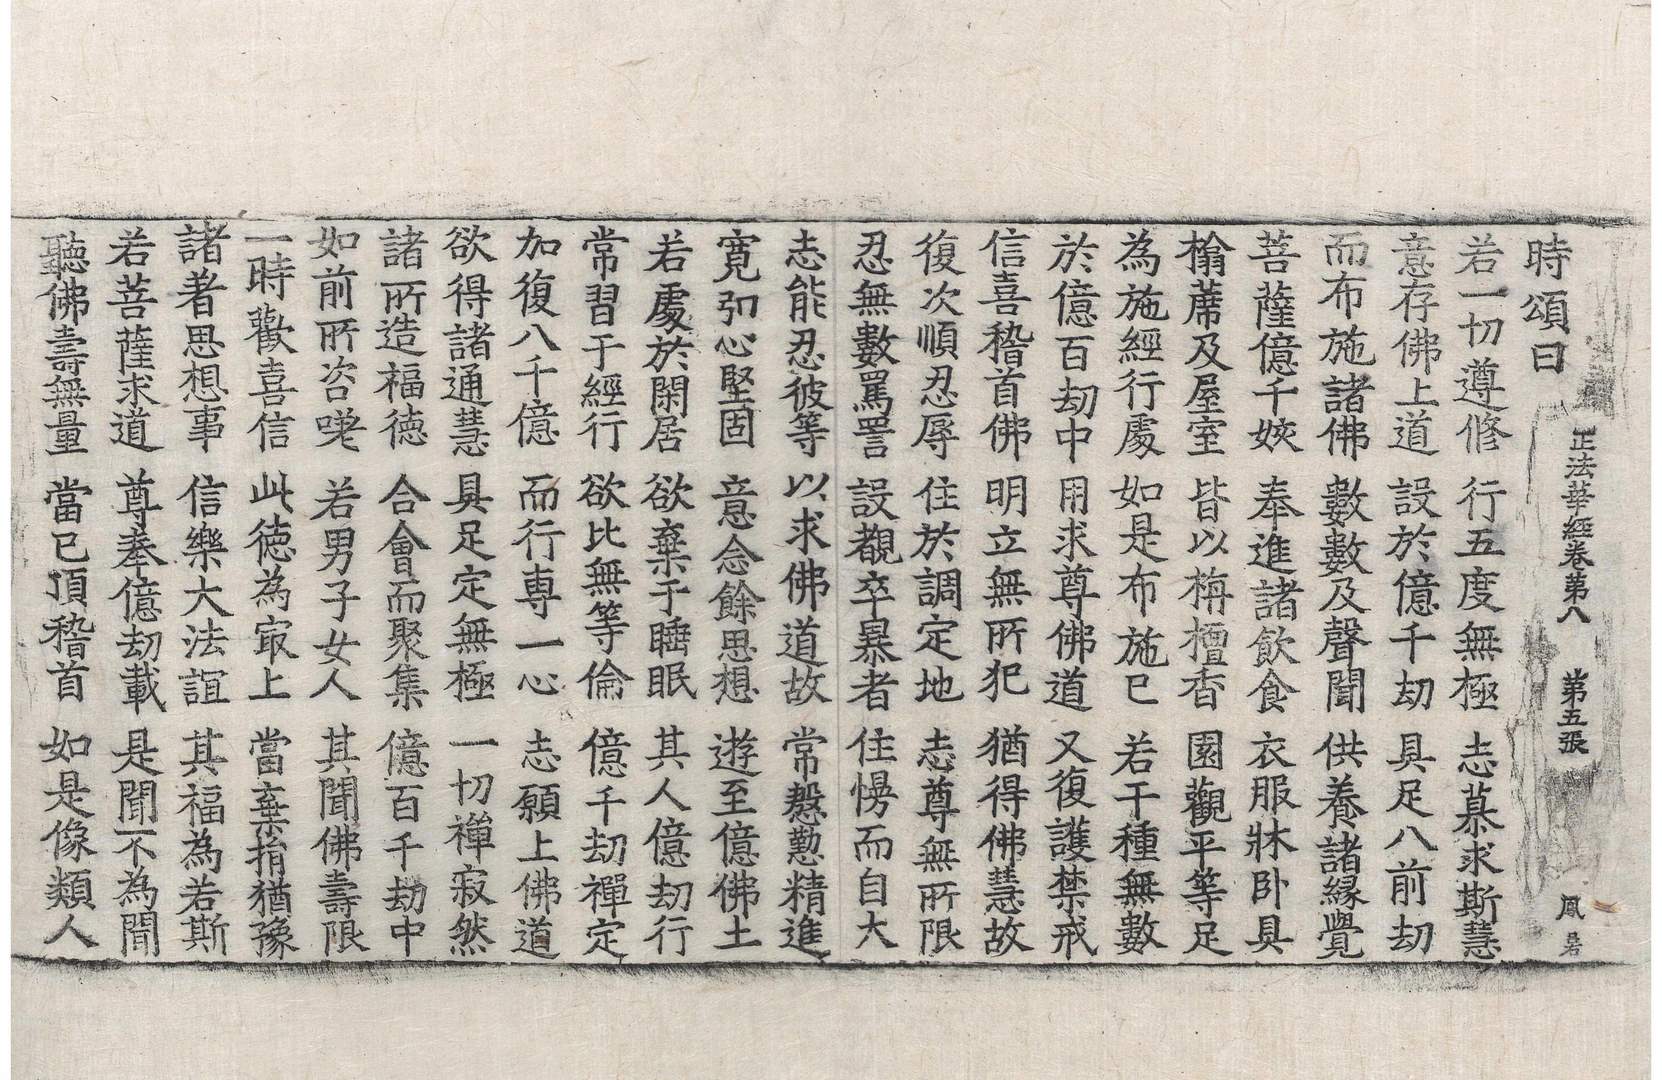 正法華經卷第八 第五張 鳳
時頌曰
若一切遵修 行五度無極 志慕求斯慧
意存佛上道 設於億千劫 具足八前劫
而布施諸佛 數數及聲聞 供養諸緣覺
菩薩億千姟 奉進諸飲食 衣服牀卧具
㯽蓆及屋室 皆以栴檀香 園觀平等足
為施經行處 如是布施已 若干種無數
於億百劫中 用求尊佛道 又復護禁戒
信喜稽首佛 明立無所犯 猶得佛慧故
復次順忍辱 住於調定地 志尊無所限
忍無數罵詈 設觀卒暴者 住慢而自大
志能忍彼等 以求佛道故 常慇懃精進
寬弘心堅固 意念餘思想 遊至億佛土
若處於閑居 欲棄于睡眠 其人億劫行
常習于經行 欲比無等倫 億千劫禪定
加復八千億 而行專一心 志願上佛道
欲得諸通慧 具足定無極 一切禪寂然
諸所造福德 合會而聚集 億百千劫中
如前所咨嗟 若男子女人 其聞佛壽限
一時歡喜信 此德為㝡上 當棄捐猶豫
諸著思想事 信樂大法誼 其福為若斯
若菩薩求道 尊奉億劫載 是聞不為聞
聽佛壽無量 當已頂稽首 如是像類人